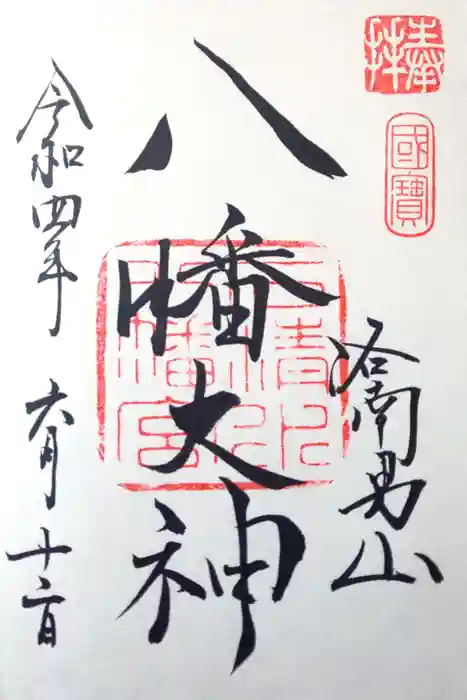 奉拝
國寶
洛南男山
八幡大神
石清水八幡宮
令和四年 六月十二日